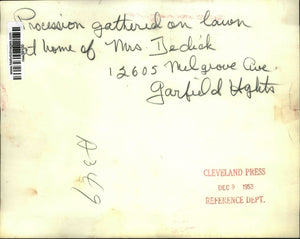 Procession gathered on lawn
at home of Mrs Bedick
12605 Melgrove Ave.
Garfield Hghts
CLEVELAND PRESS
DEC 9 1953
REFERENCE DEPT.